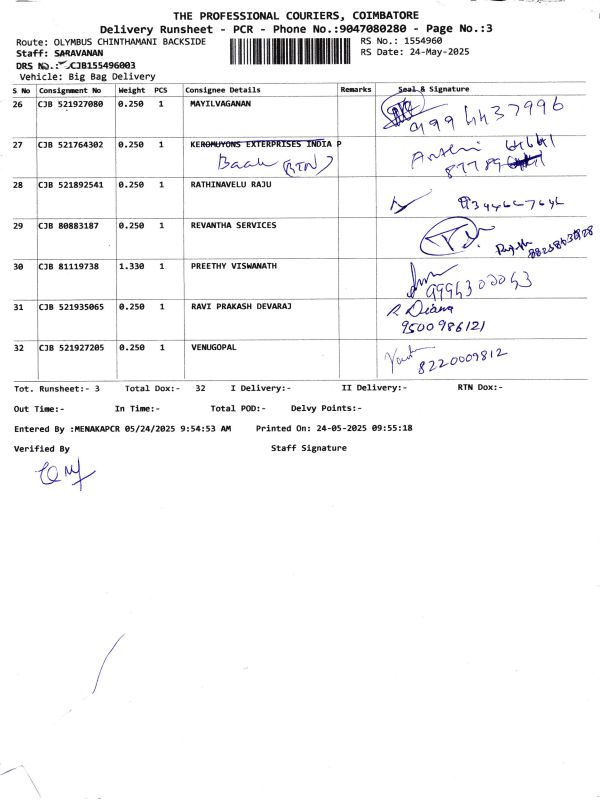 THE PROFESSIONAL COURIERS, COIMBATORE
Delivery Runsheet - PCR - Phone No.:9047080280 - Page No.:3
Route: OLYMBUS CHINTHAMANI BACKSIDE RS No.: 1554960
Staff: SARAVANAN RS Date: 24-May-2025
DRS No.: CJB155496003
Vehicle: Big Bag Delivery
S No Consignment No Weight PCS Consignee Details Remarks Seal & Signature
26 CJB 521927080 0.250 1 MAYILVAGANAN
9994437996
27 CJB 521764302 0.250 1 KEROMUYONS EXTERPRISES INDIA P
(RTN)
28 CJB 521892541 0.250 1 RATHINAVELU RAJU
29 CJB 80883187 0.250 1 REVANTHA SERVICES
30 CJB 81119738 1.330 1 PREETHY VISWANATH
9994300053
31 CJB 521935065 0.250 1 RAVI PRAKASH DEVARAJ R Diana
9500986121
32 CJB 521927205 0.250 1 VENUGOPAL
8220009812
Tot. Runsheet:- 3 Total Dox:- 32 I Delivery:- II Delivery:- RTN Dox:-
Out Time:- In Time:- Total POD:- Delvy Points:-
Entered By :MENAKAPCR 05/24/2025 9:54:53 AM Printed On: 24-05-2025 09:55:18
Verified By Staff Signature